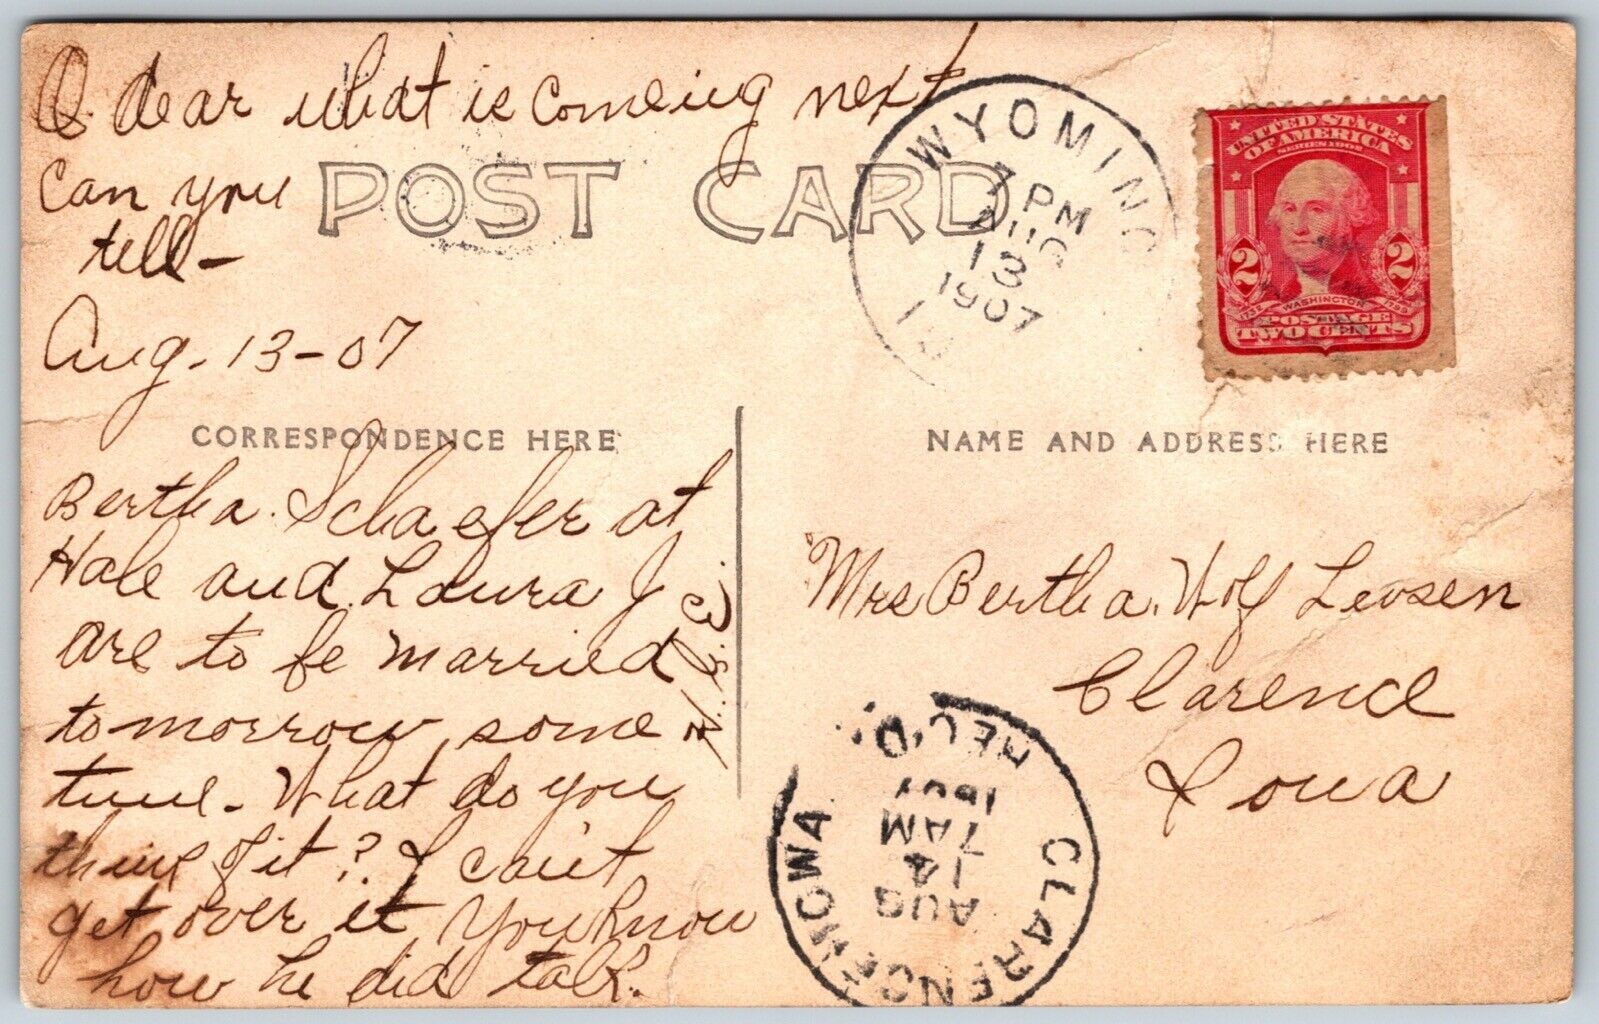 O dear what is coming next
can you
tell -
Aug. 13-07
POST CARD
WYOMING
7 PM
AUG
13
1907
UNITED STATES
OF AMERICA
SERIES 1902
2 2
WASHINGTON
1732 1799
POSTAGE
TWO CENTS
CORRESPONDENCE HERE
NAME AND ADDRESS HERE
Bertha Schaefer at
Hale and Laura J
are to be married
tomorrow some
time. What do you
think of it? I can't
get over it You know
how he did talk.
Mrs Bertha Wolf
Clarence
Iowa
CLARENCE IOWA
REC'D.
AUG
14
7 AM
1907